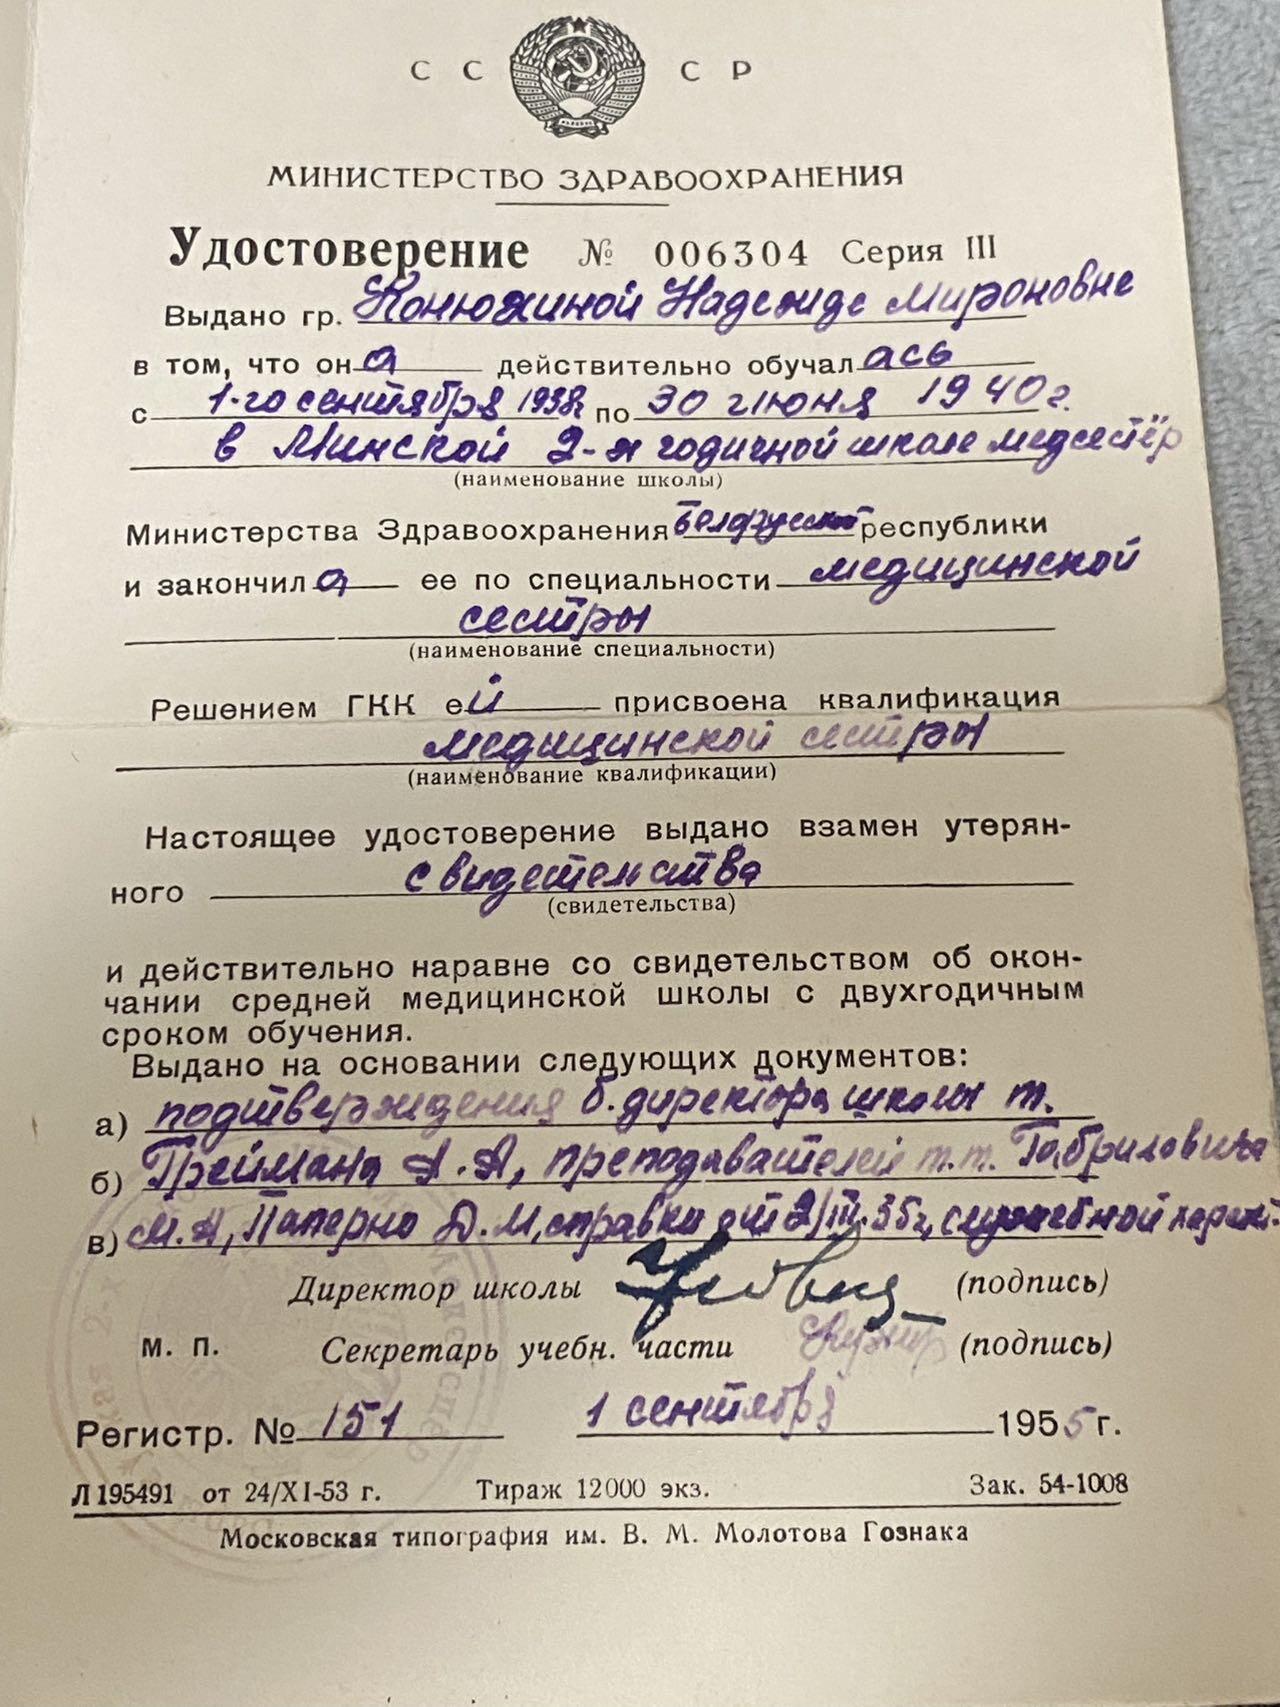 СССР
МИНИСТЕРСТВО ЗДРАВООХРАНЕНИЯ
Удостоверение № 006304 Серия III
Выдано гр. Конюхиной Надежде Мироновне
в том, что она действительно обучалась
с 1-го сентября 1938г по 30 июня 1940г.
в Минской 2-х годичной школе медсестёр
(наименование школы)
Министерства Здравоохранения Белорусской республики
и закончила ее по специальности медицинской
сестры
(наименование специальности)
Решением ГКК ей присвоена квалификация
медицинской сестры
(наименование квалификации)
Настоящее удостоверение выдано взамен утерян-
ного свидетельства
(свидетельства)
и действительно наравне со свидетельством об окон-
чании средней медицинской школы с двухгодичным
сроком обучения.
Выдано на основании следующих документов:
а) подтверждения б. директора школы т.
б) Преймана А.А, преподавателей т.т. Габриловича
в) М.А, Паперно Д.М, справки от 2/III.35г, служебной
Директор школы (подпись)
м. п. Секретарь учебн. части (подпись)
Регистр. № 151 1 сентября 1955 г.
Л 195491 от 24/XI-53 г. Тираж 12000 экз. Зак. 54-1008
Московская типография им. В. М. Молотова Гознака